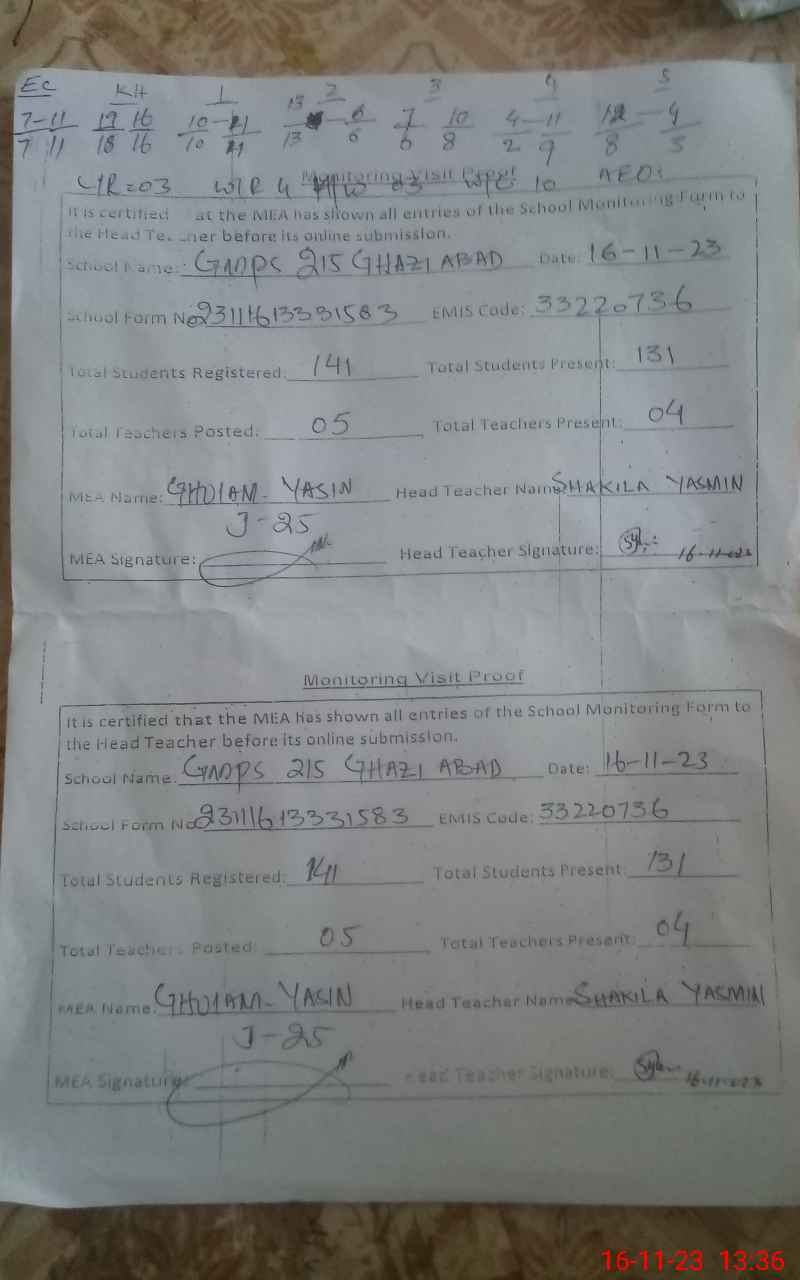 Ec KH 1 2 3 4 5
7-11 19 16 10- 13 6 7 10 4-11 -4
7 11 18 16 10 13 6 6 8 2 9 8 3
C/R=03 W/R 4 03 10 AEO:
Monitoring Visit Proof
It is certified at the MEA has shown all entries of the School Monitoring Form to
the Head Teacher before its online submission.
School Name: GMPS 215 GHAZI ABAD Date: 16-11-23
School Form No 23111613331583 EMIS Code: 33220736
Total Students Registered: 141 Total Students Present: 131
Total Teachers Posted: 05 Total Teachers Present: 04
MEA Name: GHULAM-YASIN Head Teacher Name SHAKILA YASMIN
J-25
MEA Signature: Head Teacher Signature:
Monitoring Visit Proof
It is certified that the MEA has shown all entries of the School Monitoring Form to
the Head Teacher before its online submission.
School Name: GMPS 215 GHAZI ABAD Date: 16-11-23
School Form No 23111613331583 EMIS Code: 33220736
Total Students Registered: 141 Total Students Present: 131
Total Teachers Posted: 05 Total Teachers Present: 04
MEA Name: GHULAM-YASIN Head Teacher Name SHAKILA YASMIN
J-25
MEA Signature: Head Teacher Signature:
16-11-23 13:36